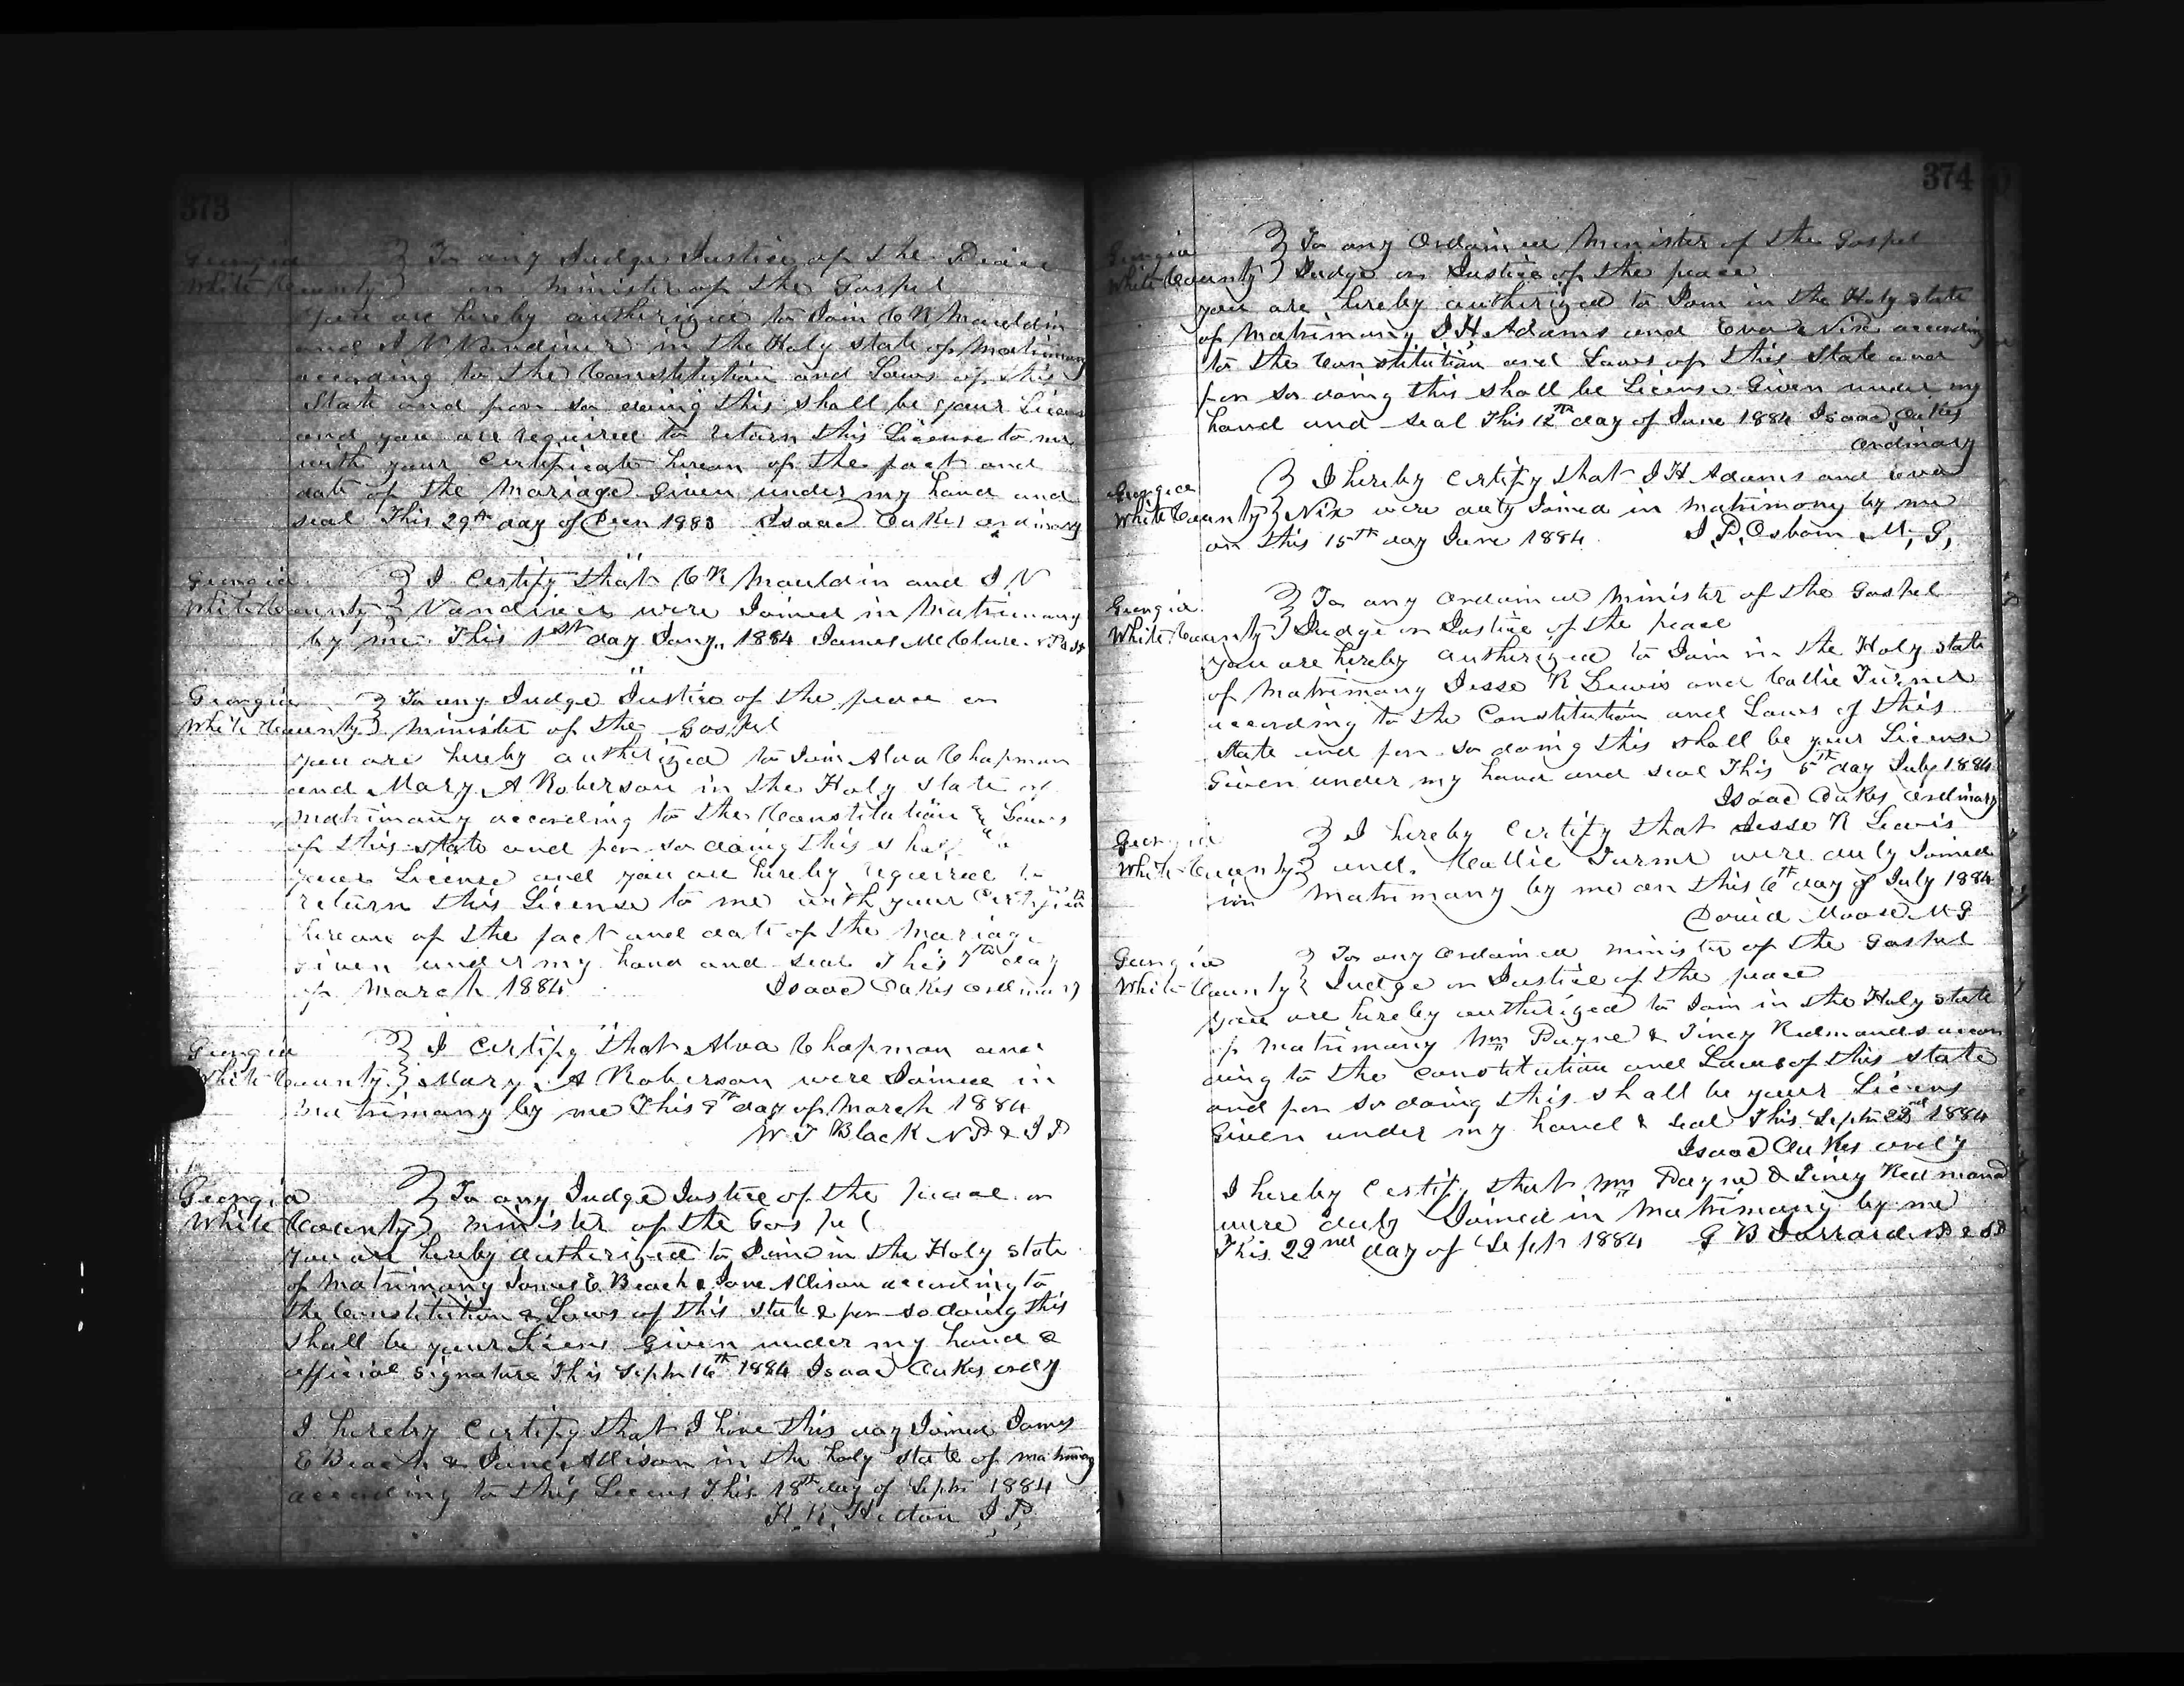 373
Georgia } To any Judge Justice of the Peace
White County } or Minister of the Gospel
You are hereby authorized to Join C R Mauldin
and I N Vandiver in the Holy state of Matrimony
according to the Constitution and Laws of this
State and for so doing this shall be your License
and you are required to return this License to me
with your Certificate hereon of the fact and
date of the Mariage Given under my hand and
seal This 29th day of Decr 1883 Isaac Oakes ordinary
Georgia } I Certify that C R Mauldin and I N
White County } Vandiver were Joined in Matrimony
by me This 1st day Jany., 1884 James McClure
Georgia } To any Judge Justice of the peace or
White County } minister of the Gospel
you are hereby authorized to Join Alva Chapman
and Mary A Roberson in the Holy State of
Matrimony according to the Constitution & Laws
of this state and for so doing this shall be
your License and you are hereby required to
return this License to me with your Certificate
hereon of the fact and date of the Mariage
Given under my hand and seal This 7th day
of March 1884 Isaac Oakes ordinary
Georgia } I Certify that Alva Chapman and
White County } Mary A Roberson were Joined in
Matrimony by me This 9th day of March 1884
W T Black N P & J P
Georgia } To any Judge Justice of the peace or
White County } minister of the Gospel
You are hereby authorized to Join in the Holy state
of Matrimony James E Beach & Jane Allison according to
the Constitution & Laws of this state & for so doing this
shall be your Licens Given under my hand &
official signature This Septr 16th 1884 Isaac Oakes ordy
I hereby Certify that I have this day Joined James
E Beach & Jane Allison in the holy state of matrimony
according to this Licens This 18th day of Septr 1884
H. K. J. P.
374
Georgia } To any Ordained Minister of the Gospel
White County } Judge or Justice of the peace
you are hereby authorized to Join in the Holy state
of Matrimony J H Adams and Eva Nix according
to the Constitution and Laws of this State and
for so doing this shall be License Given under my
hand and seal This 12th day of June 1884 Isaac Oakes
ordinary
Georgia } I hereby certify that J H Adams and Eva
White County } Nix were duly Joined in matrimony by me
on this 15th day June 1884 J. P. Osborn M. G.
Georgia } To any Ordained Minister of the Gospel
White County } Judge or Justice of the peace
you are hereby authorized to Join in the Holy state
of Matrimony Jesse R Lewis and Callie Turner
according to the Constitution and Laws of this
State and for so doing this shall be your License
Given under my hand and seal This 5th day July 1884
Isaac Oakes ordinary
Georgia } I hereby Certify that Jesse R Lewis
White County } and Callie Turner were duly Joined
in Matrimony by me on this 6th day of July 1884
David Moose M G
Georgia } To any Ordained minister of the Gospel
White County } Judge or Justice of the peace
you are hereby authorized to Join in the Holy state
of Matrimony Wm Payne & Tiney Redmonds accor
ding to the Constitution and Laws of this State
and for so doing this shall be your Licens
Given under my hand & seal This Septr 22nd 1884
Isaac Oakes ordy
I hereby Certify that Wm Payne & Tiney Redmond
were duly Joined in Matrimony by me
This 22nd day of Septr 1884 G B